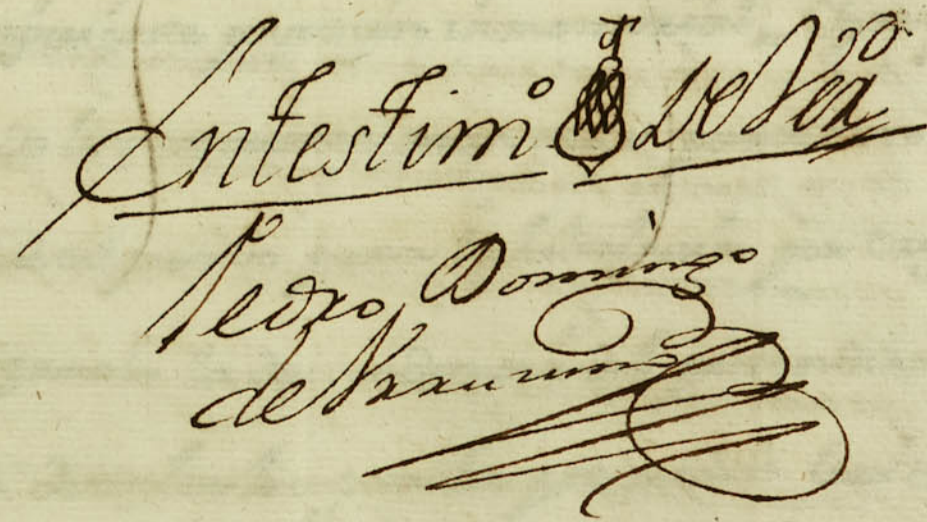 Entestimº De Verd
Pedro Domingo
de